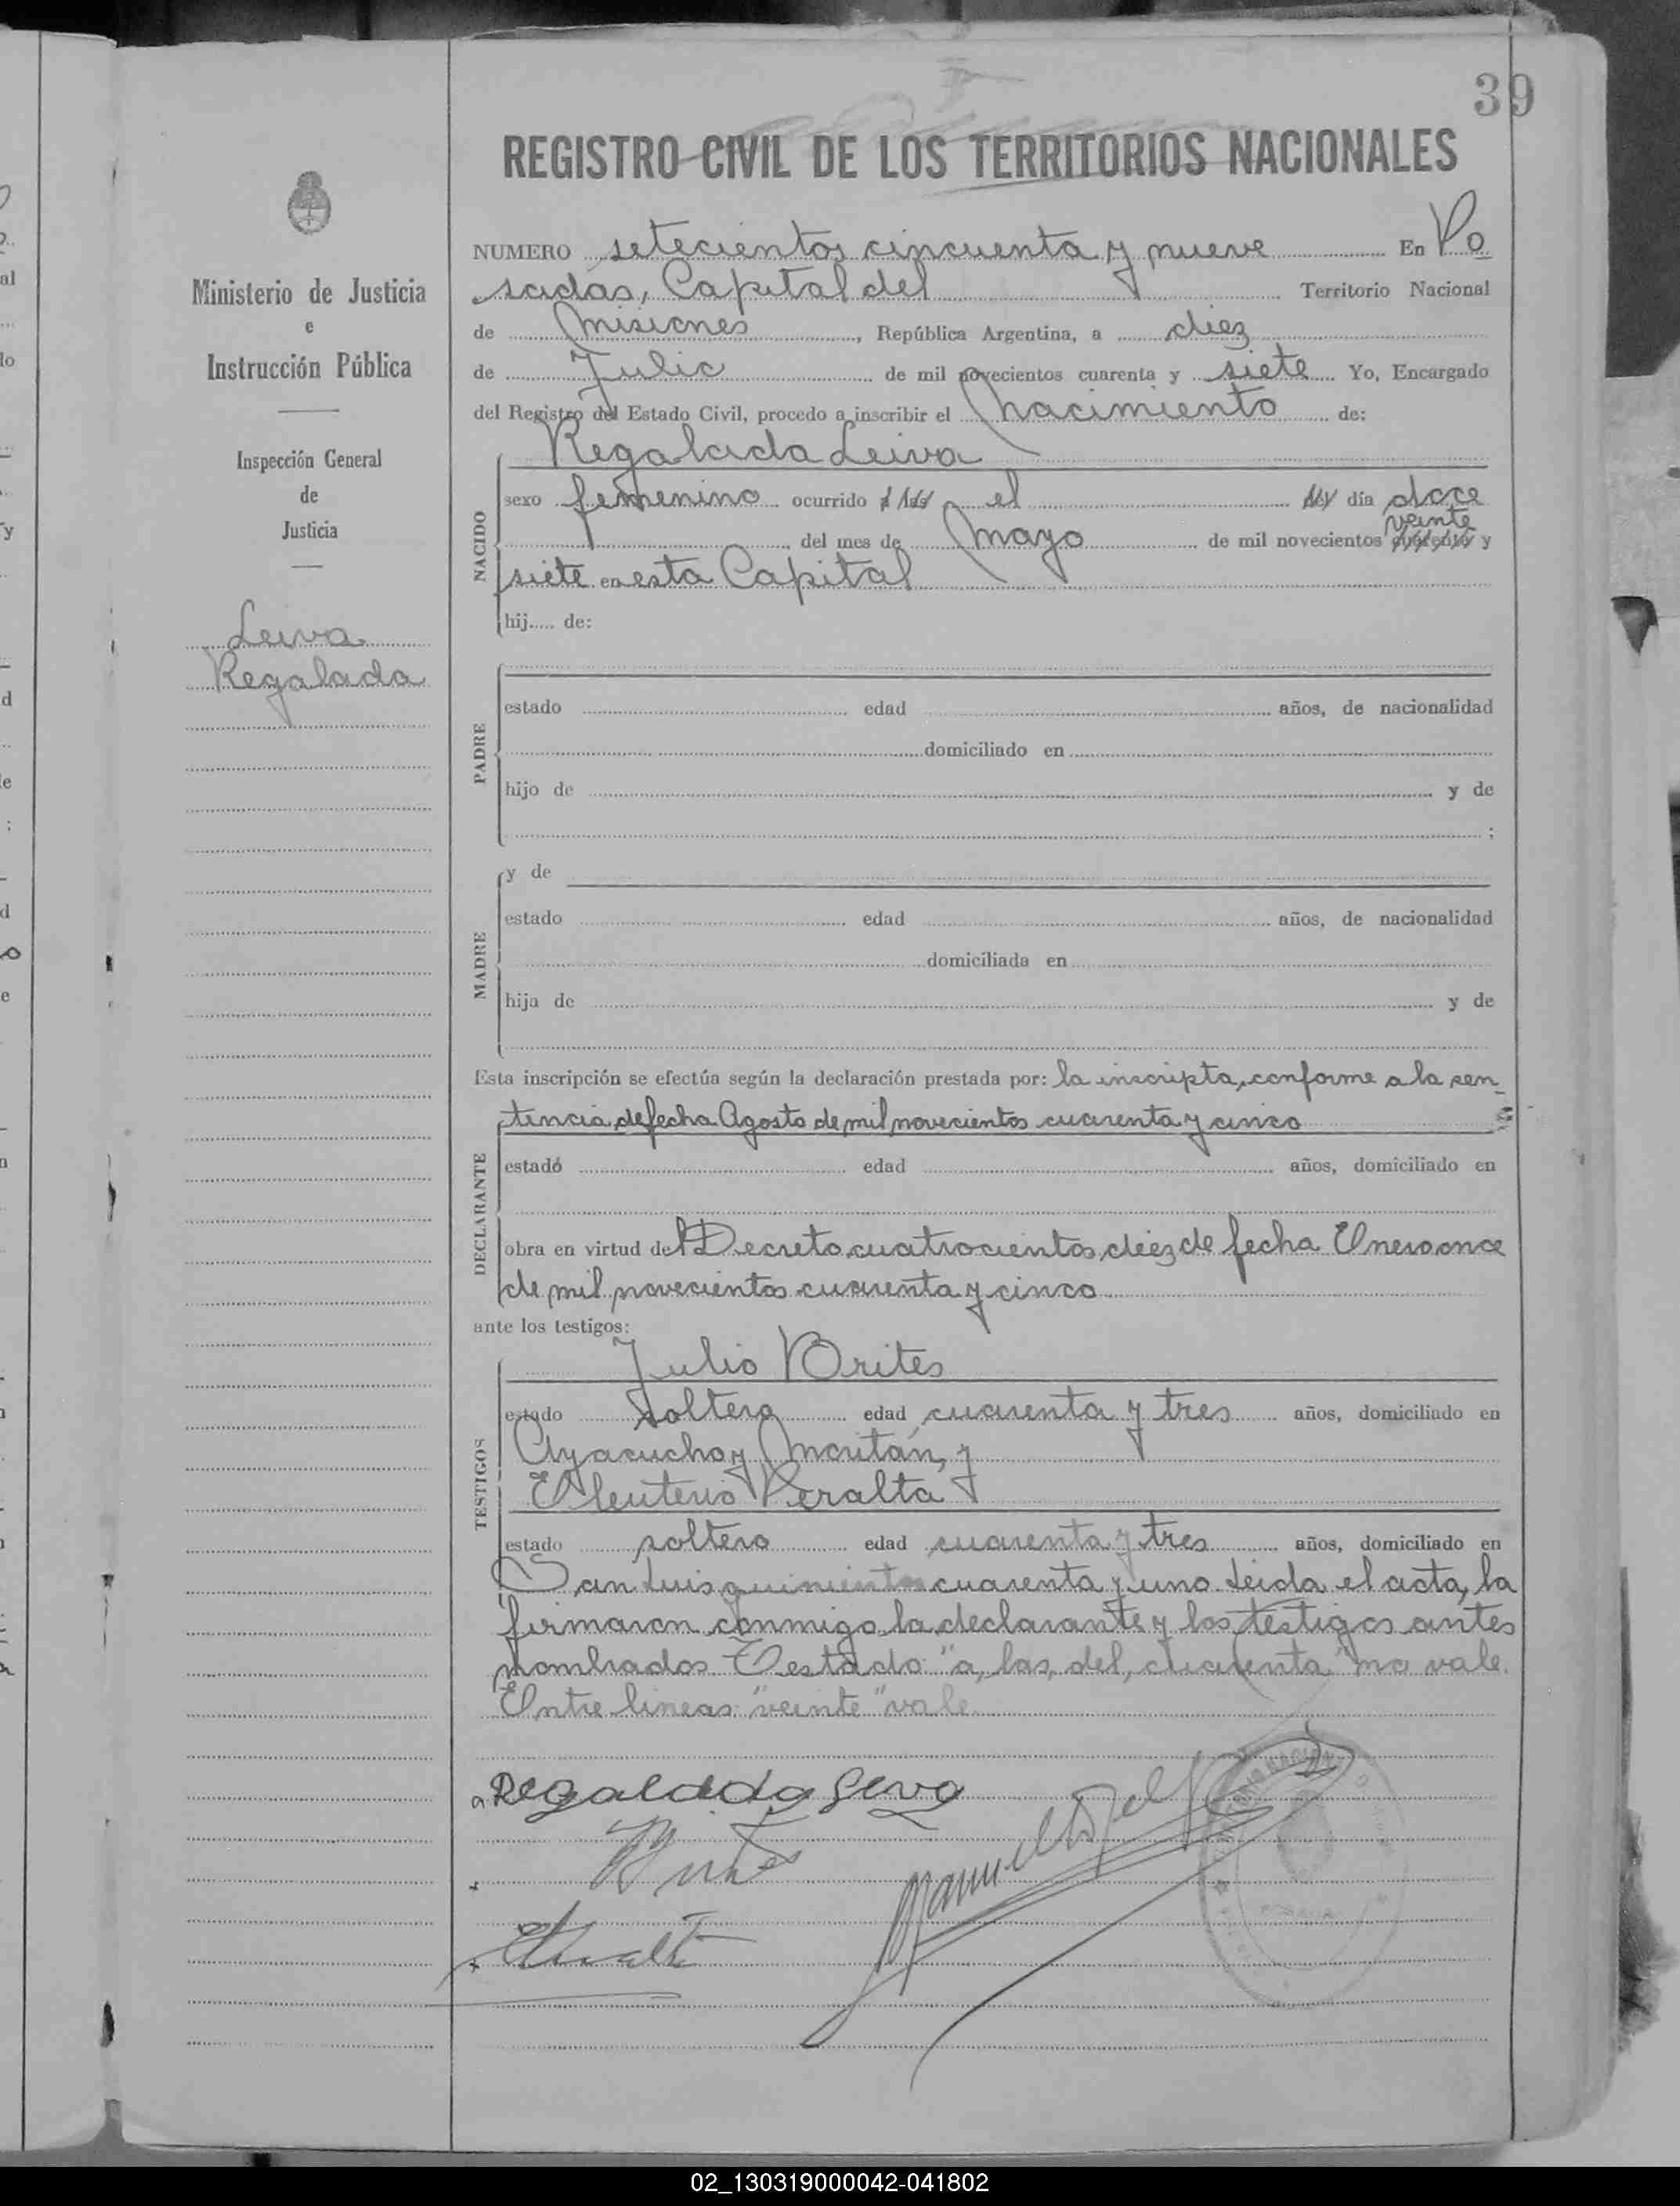 39
REGISTRO CIVIL DE LOS TERRITORIOS NACIONALES
Ministerio de Justicia
e
Instrucción Pública
Inspección General
de
Justicia
Leiva
Regalada
NUMERO setecientos cincuenta y nueve En Po
sadas, Capital del Territorio Nacional
de Misiones, República Argentina, a diez
de Julio de mil novecientos cuarenta y siete Yo, Encargado
del Registro del Estado Civil, procedo a inscribir el nacimiento de:
NACIDO
Regalada Leiva
sexo femenino ocurrido a las el del día doce
veinte
del mes de Mayo de mil novecientos cuarenta y
siete en esta Capital
hij..... de:
PADRE
estado edad años, de nacionalidad
domiciliado en
hijo de y de
;
MADRE
y de
estado edad años, de nacionalidad
domiciliada en
hija de y de
Esta inscripción se efectúa según la declaración prestada por: la inscripta, conforme a la sen
tencia de fecha Agosto de mil novecientos cuarenta y cinco
DECLARANTE
estado edad años, domiciliado en
obra en virtud del Decreto cuatrocientos diez de fecha Enero once
de mil novecientos cuarenta y cinco
ante los testigos:
TESTIGOS
Julio Brites
estado soltero edad cuarenta y tres años, domiciliado en
Ayacucho y Moritán, y
Eleuterio Peralta
estado soltero edad cuarenta y tres años, domiciliado en
San Luis quinientos cuarenta y uno. Leida el acta, la
firmaron conmigo la declarante y los testigos antes
nombrados Testado "a, las, del, cuarenta" no vale.
Entre lineas "veinte" vale
Regalada Leiva
Brites
02_130319000042-041802